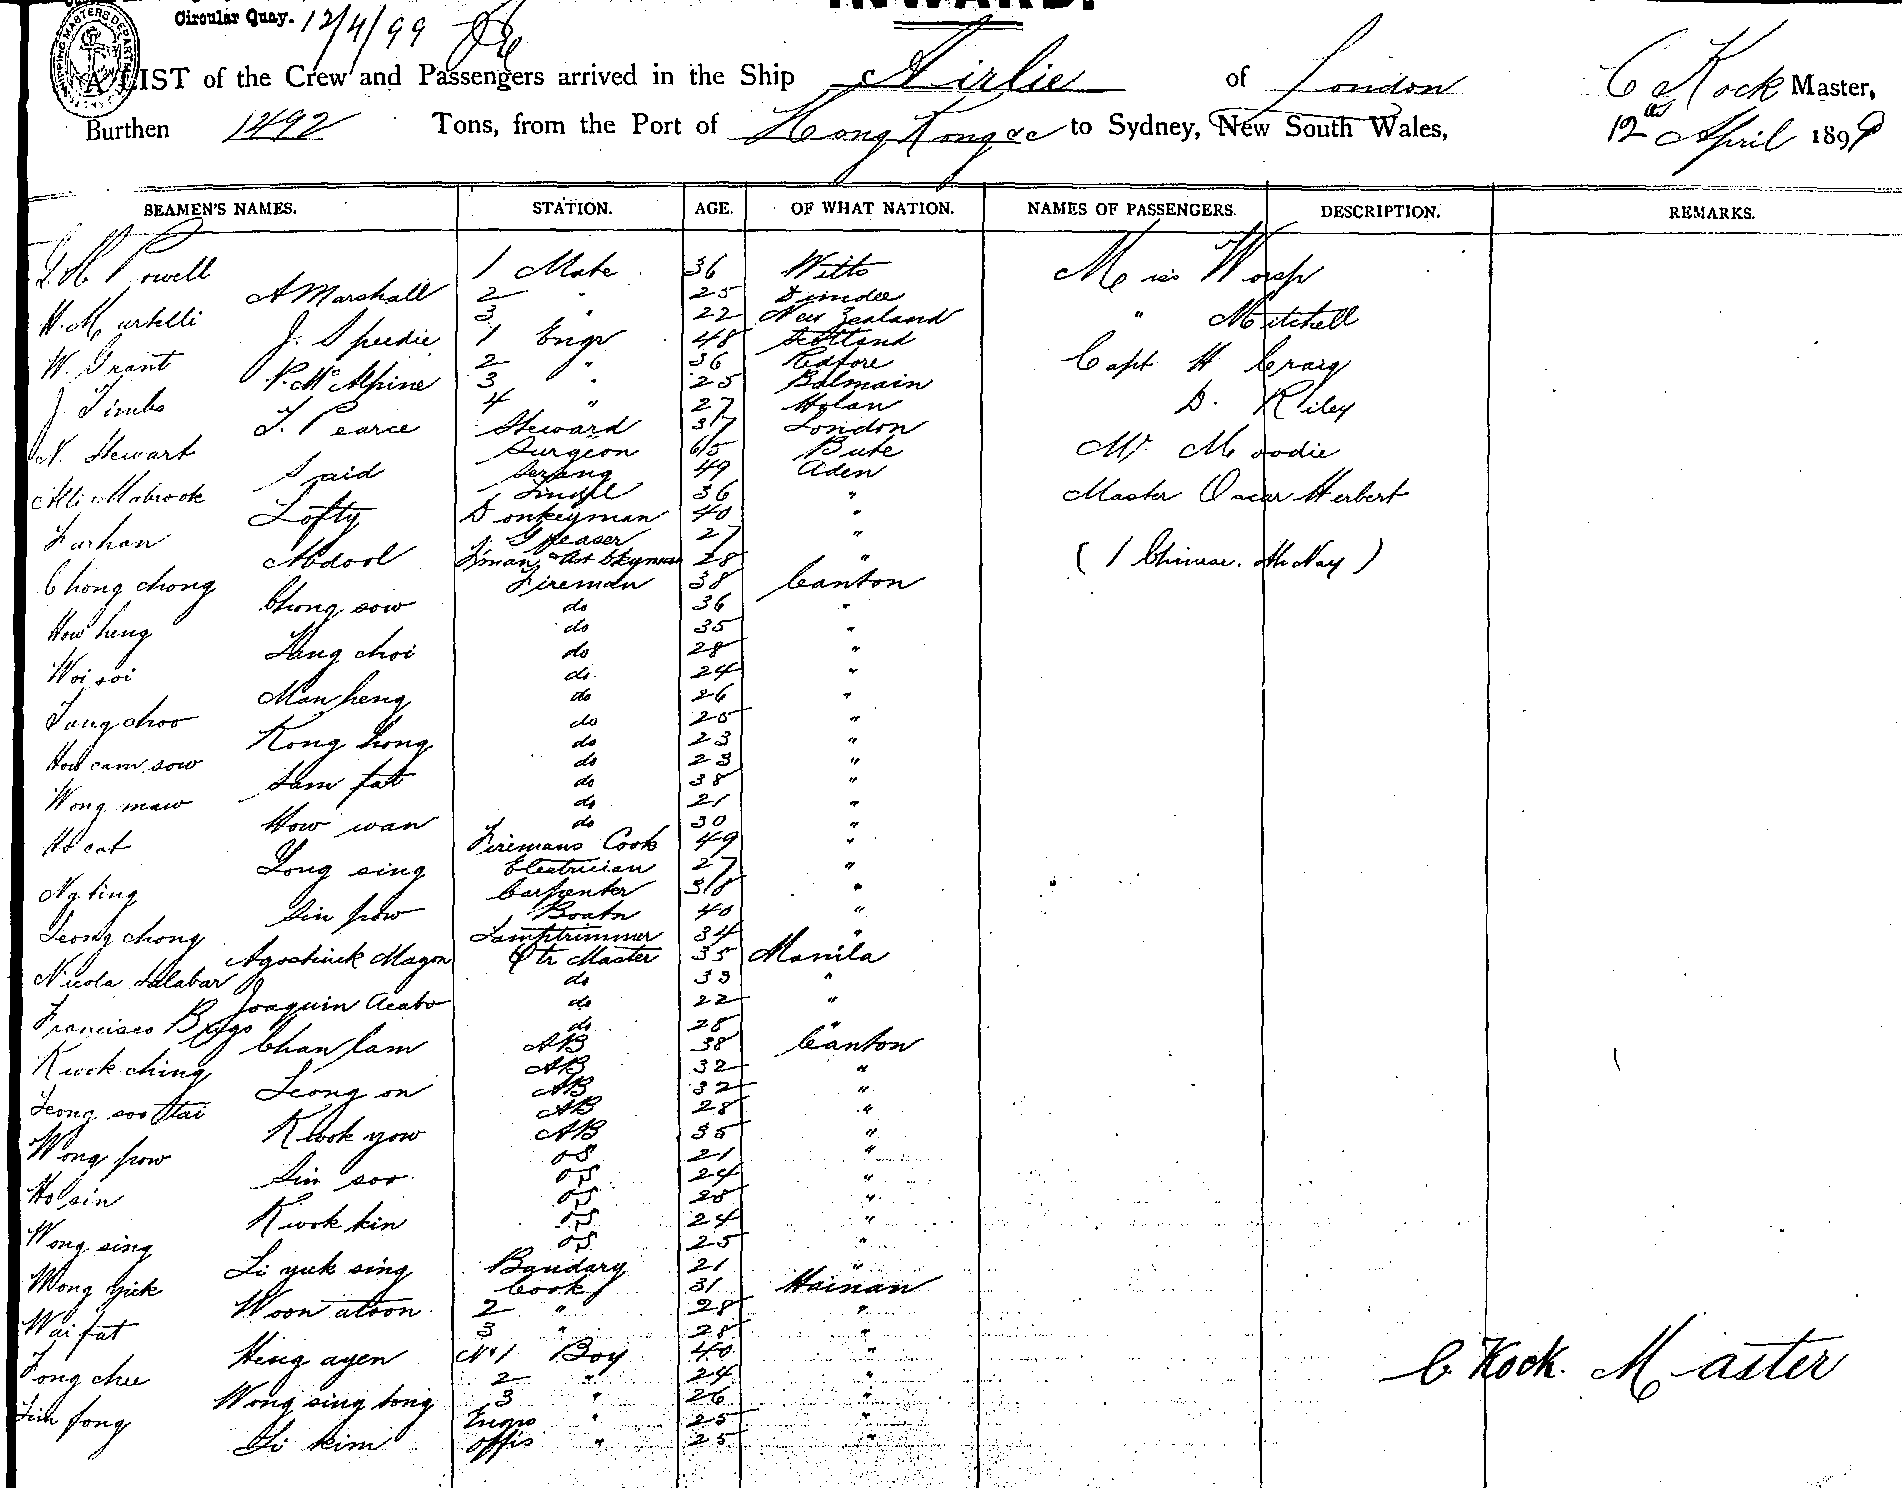 INWARD.
Circular Quay. 12/4/99
A LIST of the Crew and Passengers arrived in the Ship Airlie of London C Kock Master,
Burthen 1492 Tons, from the Port of Hong Kong &c to Sydney, New South Wales, 12th April 1899
SEAMEN'S NAMES. STATION. AGE. OF WHAT NATION. NAMES OF PASSENGERS. DESCRIPTION. REMARKS.
Powell 1 Mate 36 Wilts Miss Worsp
A Marshall 2 " 25 Dundee
H. Martelli 3 " 22 New Zealand " Mitchell
J. Speedie 1 Engr 48 Scotland
W. Grant 2 " 36 Capt H Craig
P. McAlpine 3 " 25 Balmain
J. Timbs 4 " 27 D. Riley
T. Pearce Steward 37 London
N. Stewart Surgeon 65 Bute Mr. Moodie
Said Serang 49 Aden
Ali Mabrook Tindal 36 " Master Oscar Herbert
Lofty Donkeyman 40 "
Farhan Greaser 27 "
Abdool 28 " ( 1 Chinese. Ah Nay )
Chong chong Fireman 38 Canton
Chong sow do 36 "
How heng do 35 "
Lang choi do 28 "
Woi soi do 24 "
Man heng do 26 "
Tang choo do 25 "
Kong hong do 23 "
How cam sow do 23 "
Sam fat do 38 "
Wong maw do 21 "
How wan do 30 "
Ho cat Firemans Cook 49 "
Yong sing Electrician 27 "
Ng ting Carpenter 38 "
Sin pow Boatn 40 "
Leong chong Lamptrimmer 34 "
Magon Qtr Master 35 Manila
Salabar do 33 "
Joaquin Acabo do 22 "
Francisco do 28 "
Chan lam AB 38 Canton
Kwok ching AB 32 "
Leong on AB 32 "
Leong soo tai AB 28 "
Kwok yow AB 35 "
Wong pow OS 21 "
Sin soo OS 24 "
Ho sin OS 28 "
Kwok kin OS 24 "
Wong sing OS 25 "
Li yuk sing Bandary 21 "
Wong yick Cook 31 Hainan
Woon atoon 2 " 28 "
Wai fat 3 " 28 "
Hing ayen No 1 Boy 40 "
Fong chee 2 " 24 "
Wong sing tong 3 " 26 "
Lim fong Engrs " 25 "
Li kim offis " 25 "
C Kock. Master